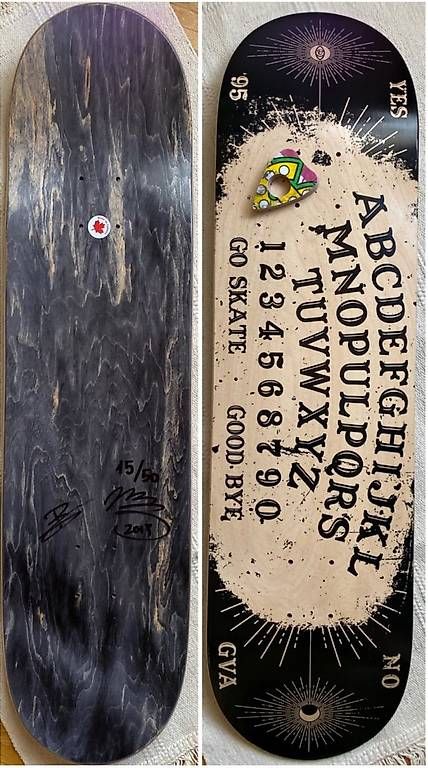 15/50
2013
95
YES
ABCDEFGHIJKL
MNOPULPQRS
TUVWXYZ
1234568790
GO SKATE GOOD BYE
GVA
NO